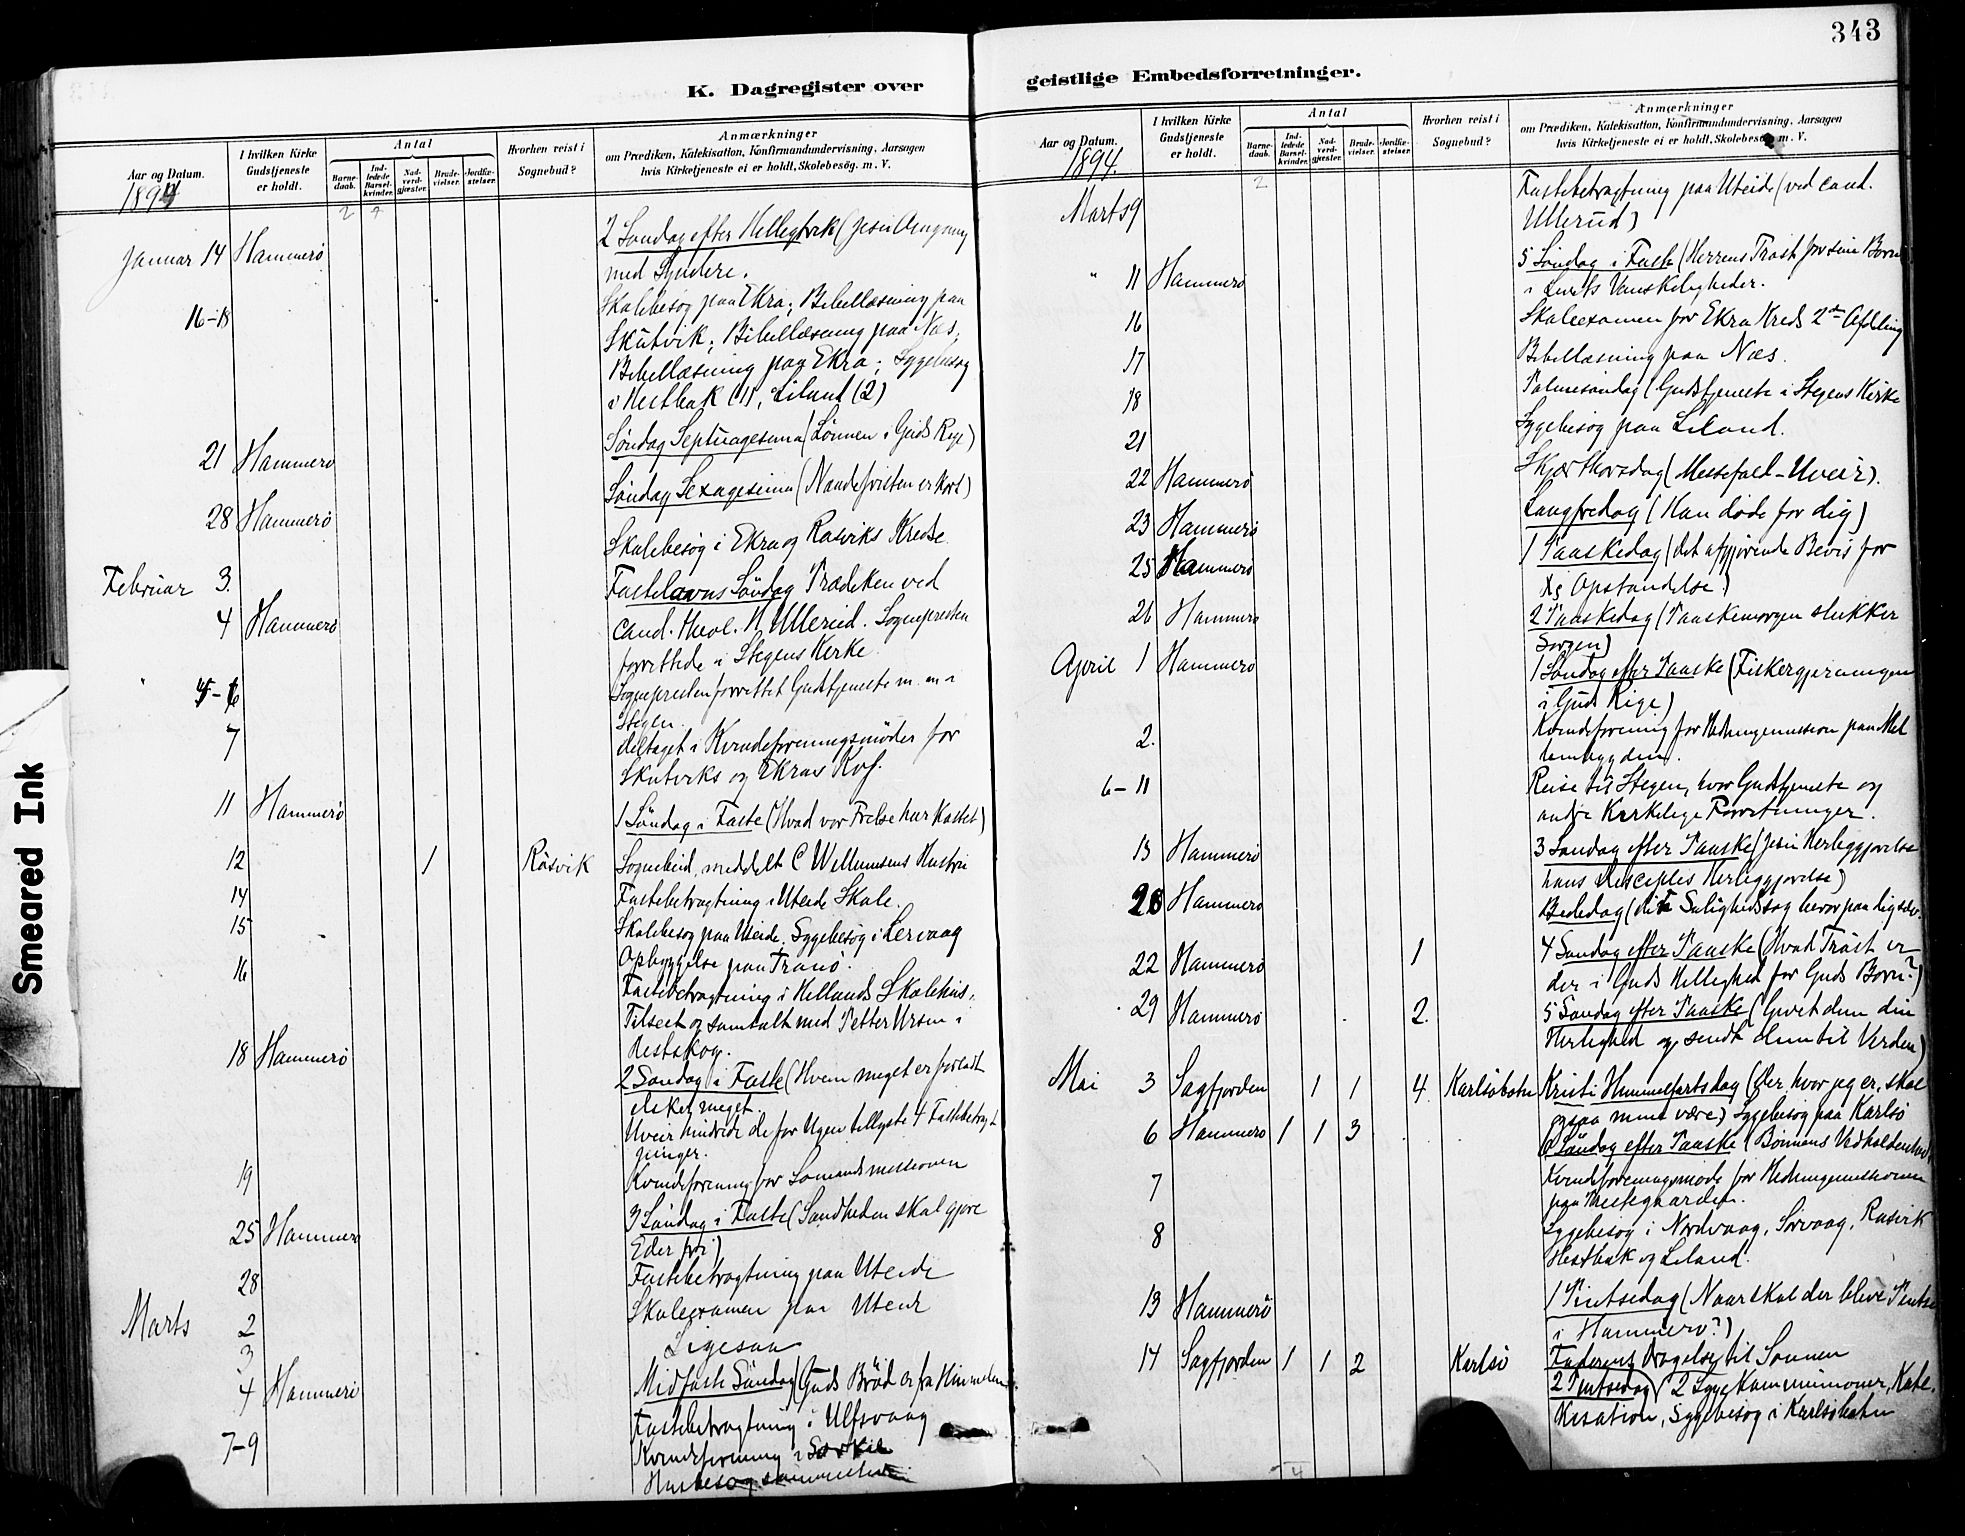 343
K. Dagregister over
Aar og Datum.
I hvilken Kirke Gudstjeneste er holdt.
Antal
Barne-daab.
Ind-ledede Barsel-kvinder.
Nad-verd-gjæster.
Brude-vielser.
Jordfæ-stelser.
Hvorhen reist i Sognebud?
Anmærkninger
om Prædiken, Katekisation, Konfirmandundervisning, Aarsagen
hvis Kirketjeneste ei er holdt, Skolebesøg. m. V.
1894
Januar 14 Hammerø 2 Søndag efter Helligtrek (Jesu Omgang
med Syndere.
16-18 Skolebesøg paa Ekra; Bibellæsning paa
Skutvik; Bibellæsning paa Næs;
Bibellæsning paa Ekra; Sygebesøg
i Hestbak (1), Liland (2)
21 Hammerø Søndag Septuagesima (Lønnen i Guds Rige)
28 Hammerø Søndag Sexagesima (Naadefristen er kort)
Februar 3. Skolebesøg i Ekra og Rasviks Kredse
4 Hammerø Fastelavns Søndag Prædiken ved
Cand. theol. N Ullerud. Sognepresten
forrettede i Stegens Kirke
" 4-6 Sognepresten forrettet Gudstjeneste m. m i
Stegen.
7 deltaget i Kvindeforeningsmøder for
Skutviks og Ekras Kvf.
11 Hammerø 1 Søndag i Faste (Hvad vor Frelse har kostet)
12 1 Råsvik Sognebud, meddelt C Willumsens Hustru
14 Fastebetragtning i Uteide Skole.
15 Skolebesøg paa Uteide. Sygebesøg i Lervaag
Opbyggelse paa Tranø.
16 Fastebetragtning i Hellands Skolehus.
Tilseet og samtalt med Petter Ursin i
Hestskog.
18 Hammerø 2 Søndag i Faste (Hvem meget er forladt
elsker meget.
Uveir hindrede de for Ugen tillyste 4 Fastebetragt
ninger.
19 Kvindeforening for Sømandsmissionen
25 Hammerø 3 Søndag i Faste (Sandheden skal gjøre
Eder fri)
28 Fastebetragtning paa Uteide
Marts 2 Skoleexamen paa Uteide
3 Ligesaa
4 Hammerø Midfaste Søndag (Guds Brød er fra Himmelen.
7-9 Fastebetragtning i Ulfsvaag
Kvindeforening i
Husbesøg
geistlige Embedsforretninger.
Aar og Datum.
I hvilken Kirke Gudstjeneste er holdt.
Antal
Barne-daab.
Ind-ledede Barsel-kvinder.
Nad-verd-gjæster.
Brude-vielser.
Jordfæ-stelser.
Hvorhen reist i Sognebud?
Anmærkninger
om Prædiken, Katekisation, Konfirmandundervisning, Aarsagen
hvis Kirketjeneste ei er holdt, Skolebesøg. m. V.
1894.
Marts 9 Fastebetragtning paa Uteide (ved cand.
Ullerud)
" 11 Hammerø 5 Søndag i Faste (Herrens Trøst for sine Børn
i Livets Vanskeligheder.
16 Skoleexamen for Ekra Kreds 2den Afdeling
17 Bibellæsning paa Næs.
18 Palmesøndag (Gudstjeneste i Stegens Kirke
21 Sygebesøg paa Liland.
22 Hammerø Skjærthorsdag (Messefald - Uveir).
23 Hammerø Langfredag (Han døde for dig)
25 Hammerø 1 Paaskedag (det afgjørende Bevis for
Xs Opstandelse)
26 Hammerø 2 Paaskedag (Paaskemorgen slukker
Sorgen)
April 1 Hammerø 1 Søndag efter Paaske (Fiskergjerningen
i Guds Rige)
2. Kvindeforening for Hedningemission paa Mel
lembygden.
6-11 Reise til Stegen, hvor Gudstjeneste og
andre Kirkelige Forretninger.
15 Hammerø 3 Søndag efter Paaske (Jesu Herliggjørelse
hans Disciples Herliggjørelse)
20 Hammerø Bededag (dit Salighedssag beror paa dig selv.
22 Hammerø 1 4 Søndag efter Paaske (Hvad Trøst er
der i Guds Hellighed for Guds Børn?)
29 Hammerø 2. 5 Søndag efter Paaske (Givet dem din
Herlighed og sendt dem til Verden)
Mai 3 Sagfjorden 1 1 4 Karlsöbotn Kristi Himmelfartsdag (der hvor jeg er, skal
ogsaa mine være) Sygebesøg paa Karlsø
6 Hammerø 1 1 3 6 Søndag efter Paaske (Bønnens Vedholdenhed)
7 Kvindeforeningsmøde for Hedningemissionen
paa Prestegaarden.
8 Sygebesøg i Nordvaag, Sørvaag, Rasvik
Hestbak og Liland.
13 Hammerø 1 Pintsedag (Naar skal der blive Pintse
i Hammerø?)
14 Sagfjorden 1 1 2 Karlsö Faderens Dragelse til Sønnen
2 Pintsedag) 2 Sygekommunioner, Kate-
kisation, Sygebesøg i Karlsöbotn
Smeared Ink